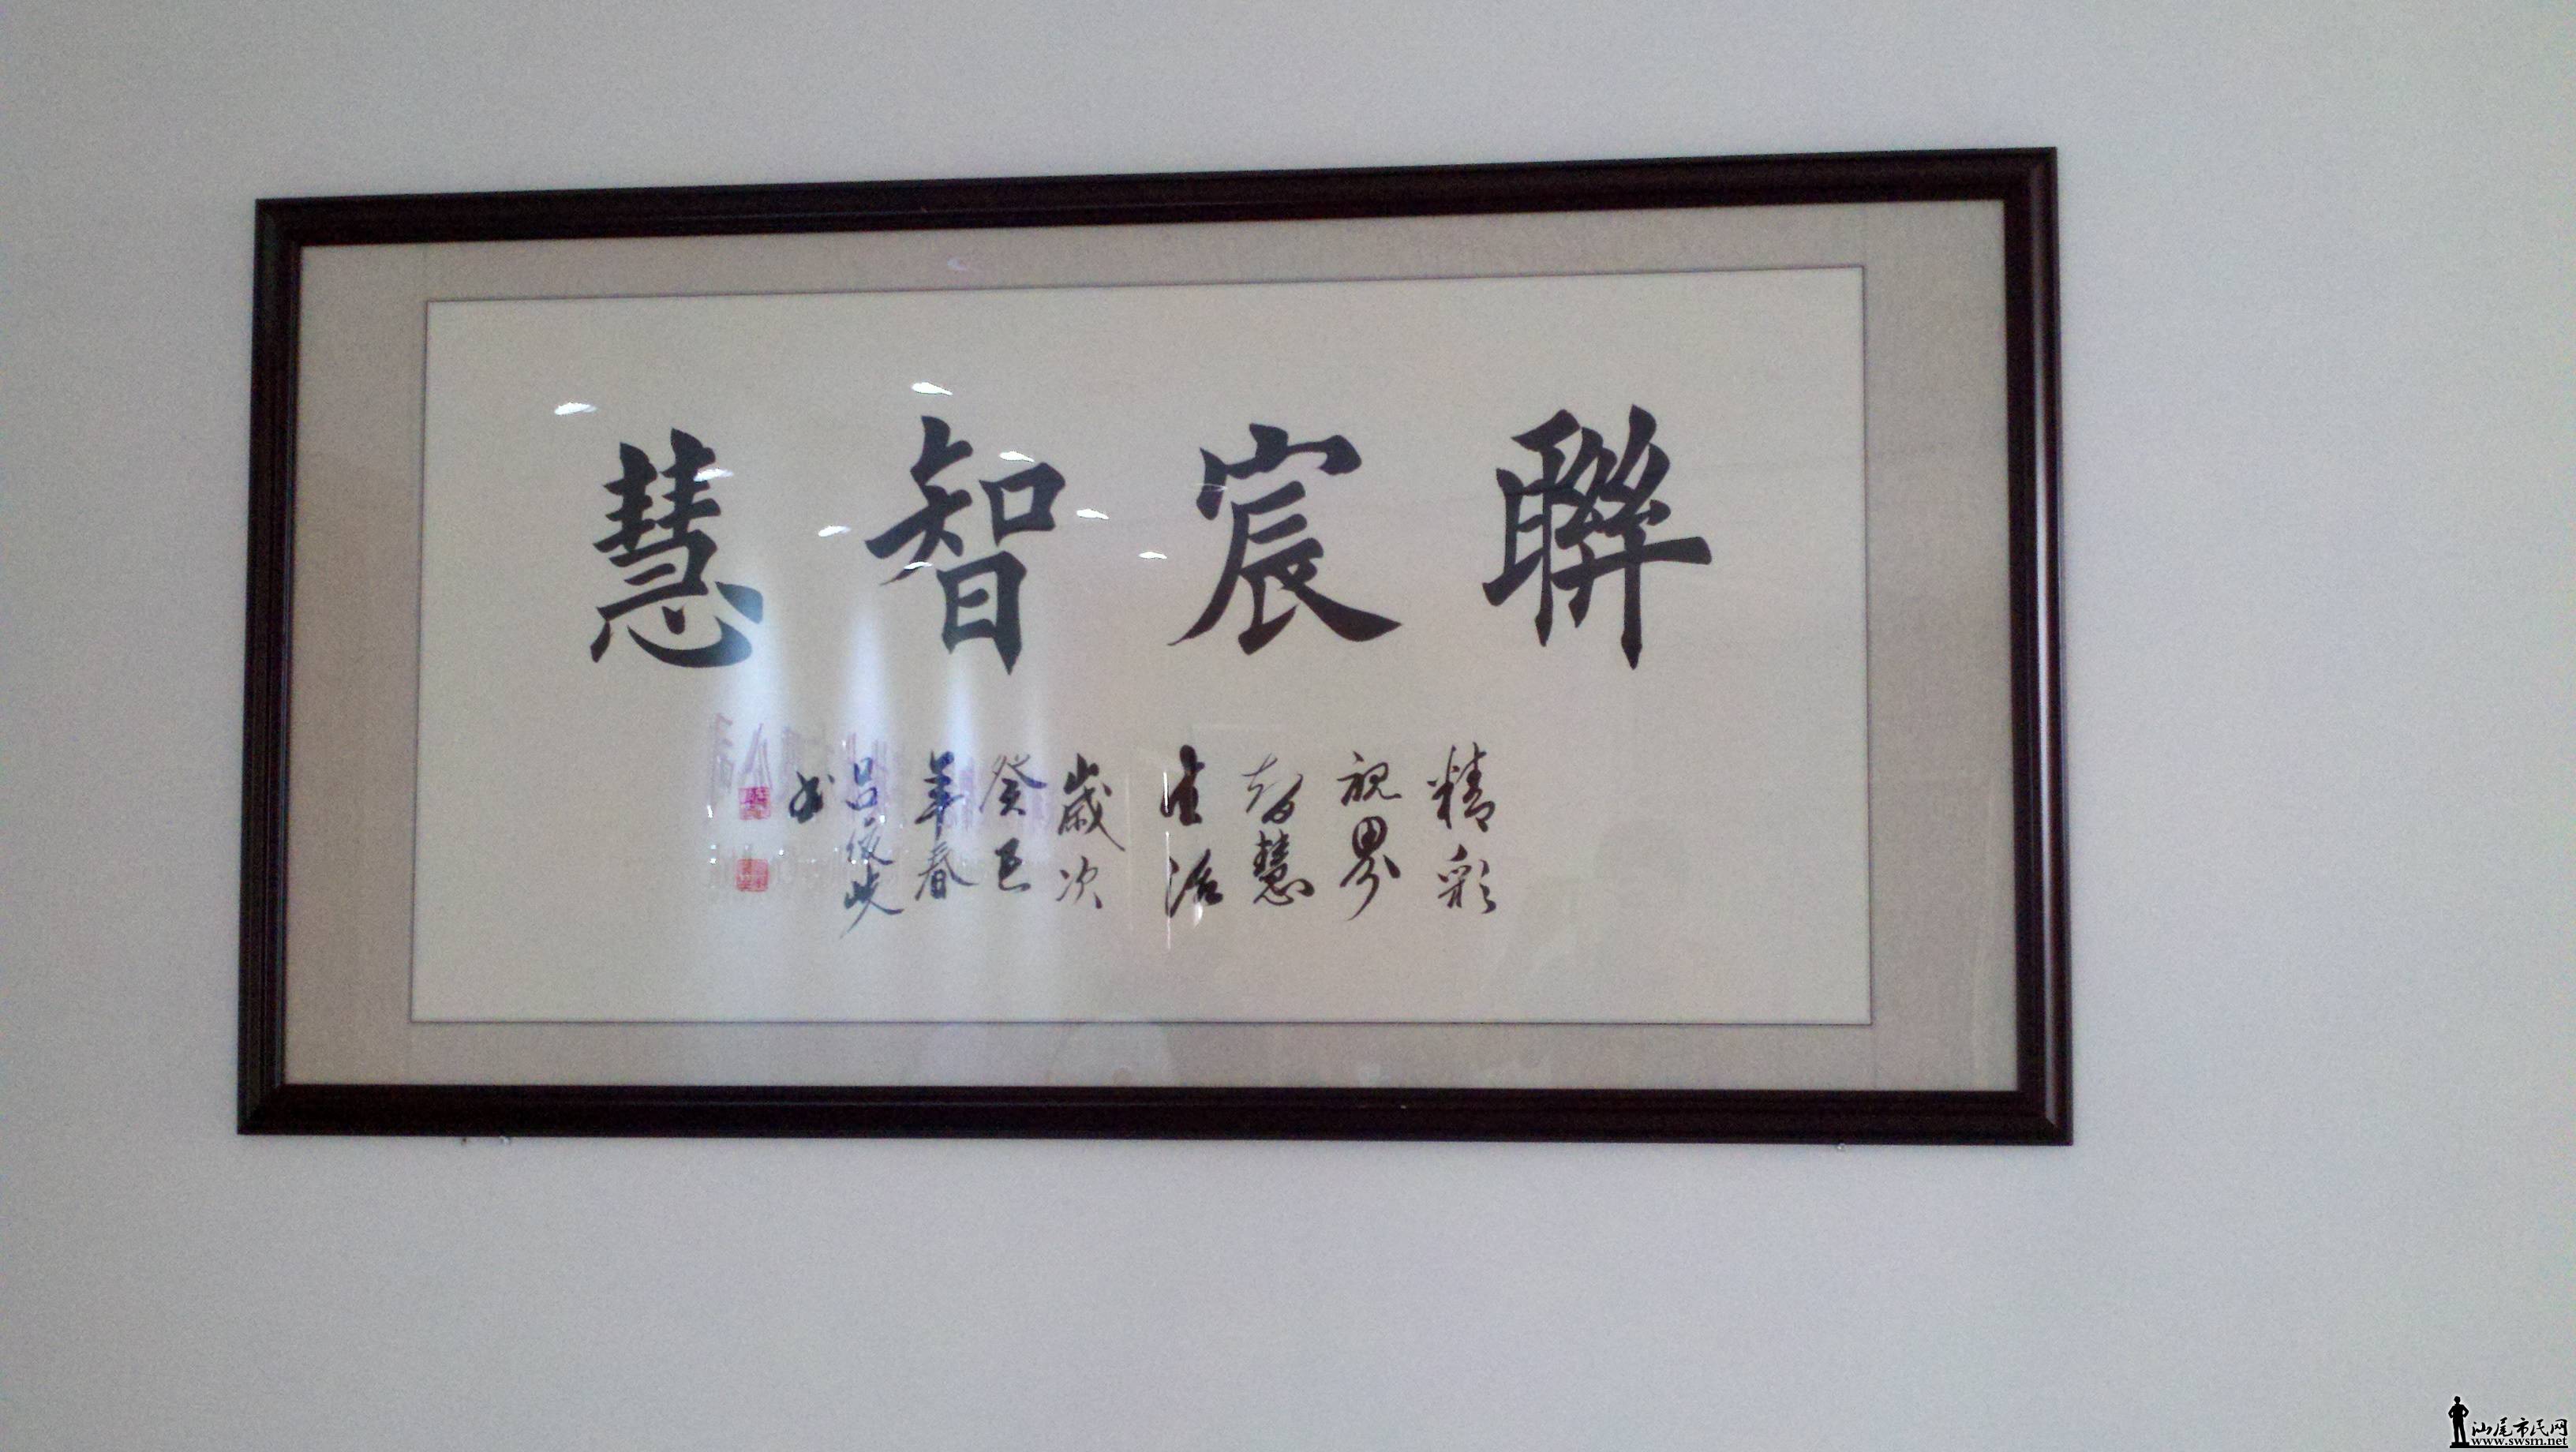 聯宸智慧
精彩
視界
智慧
生活
歲次
癸巳
年春
呂
書
汕尾市民网
www.swsm.net